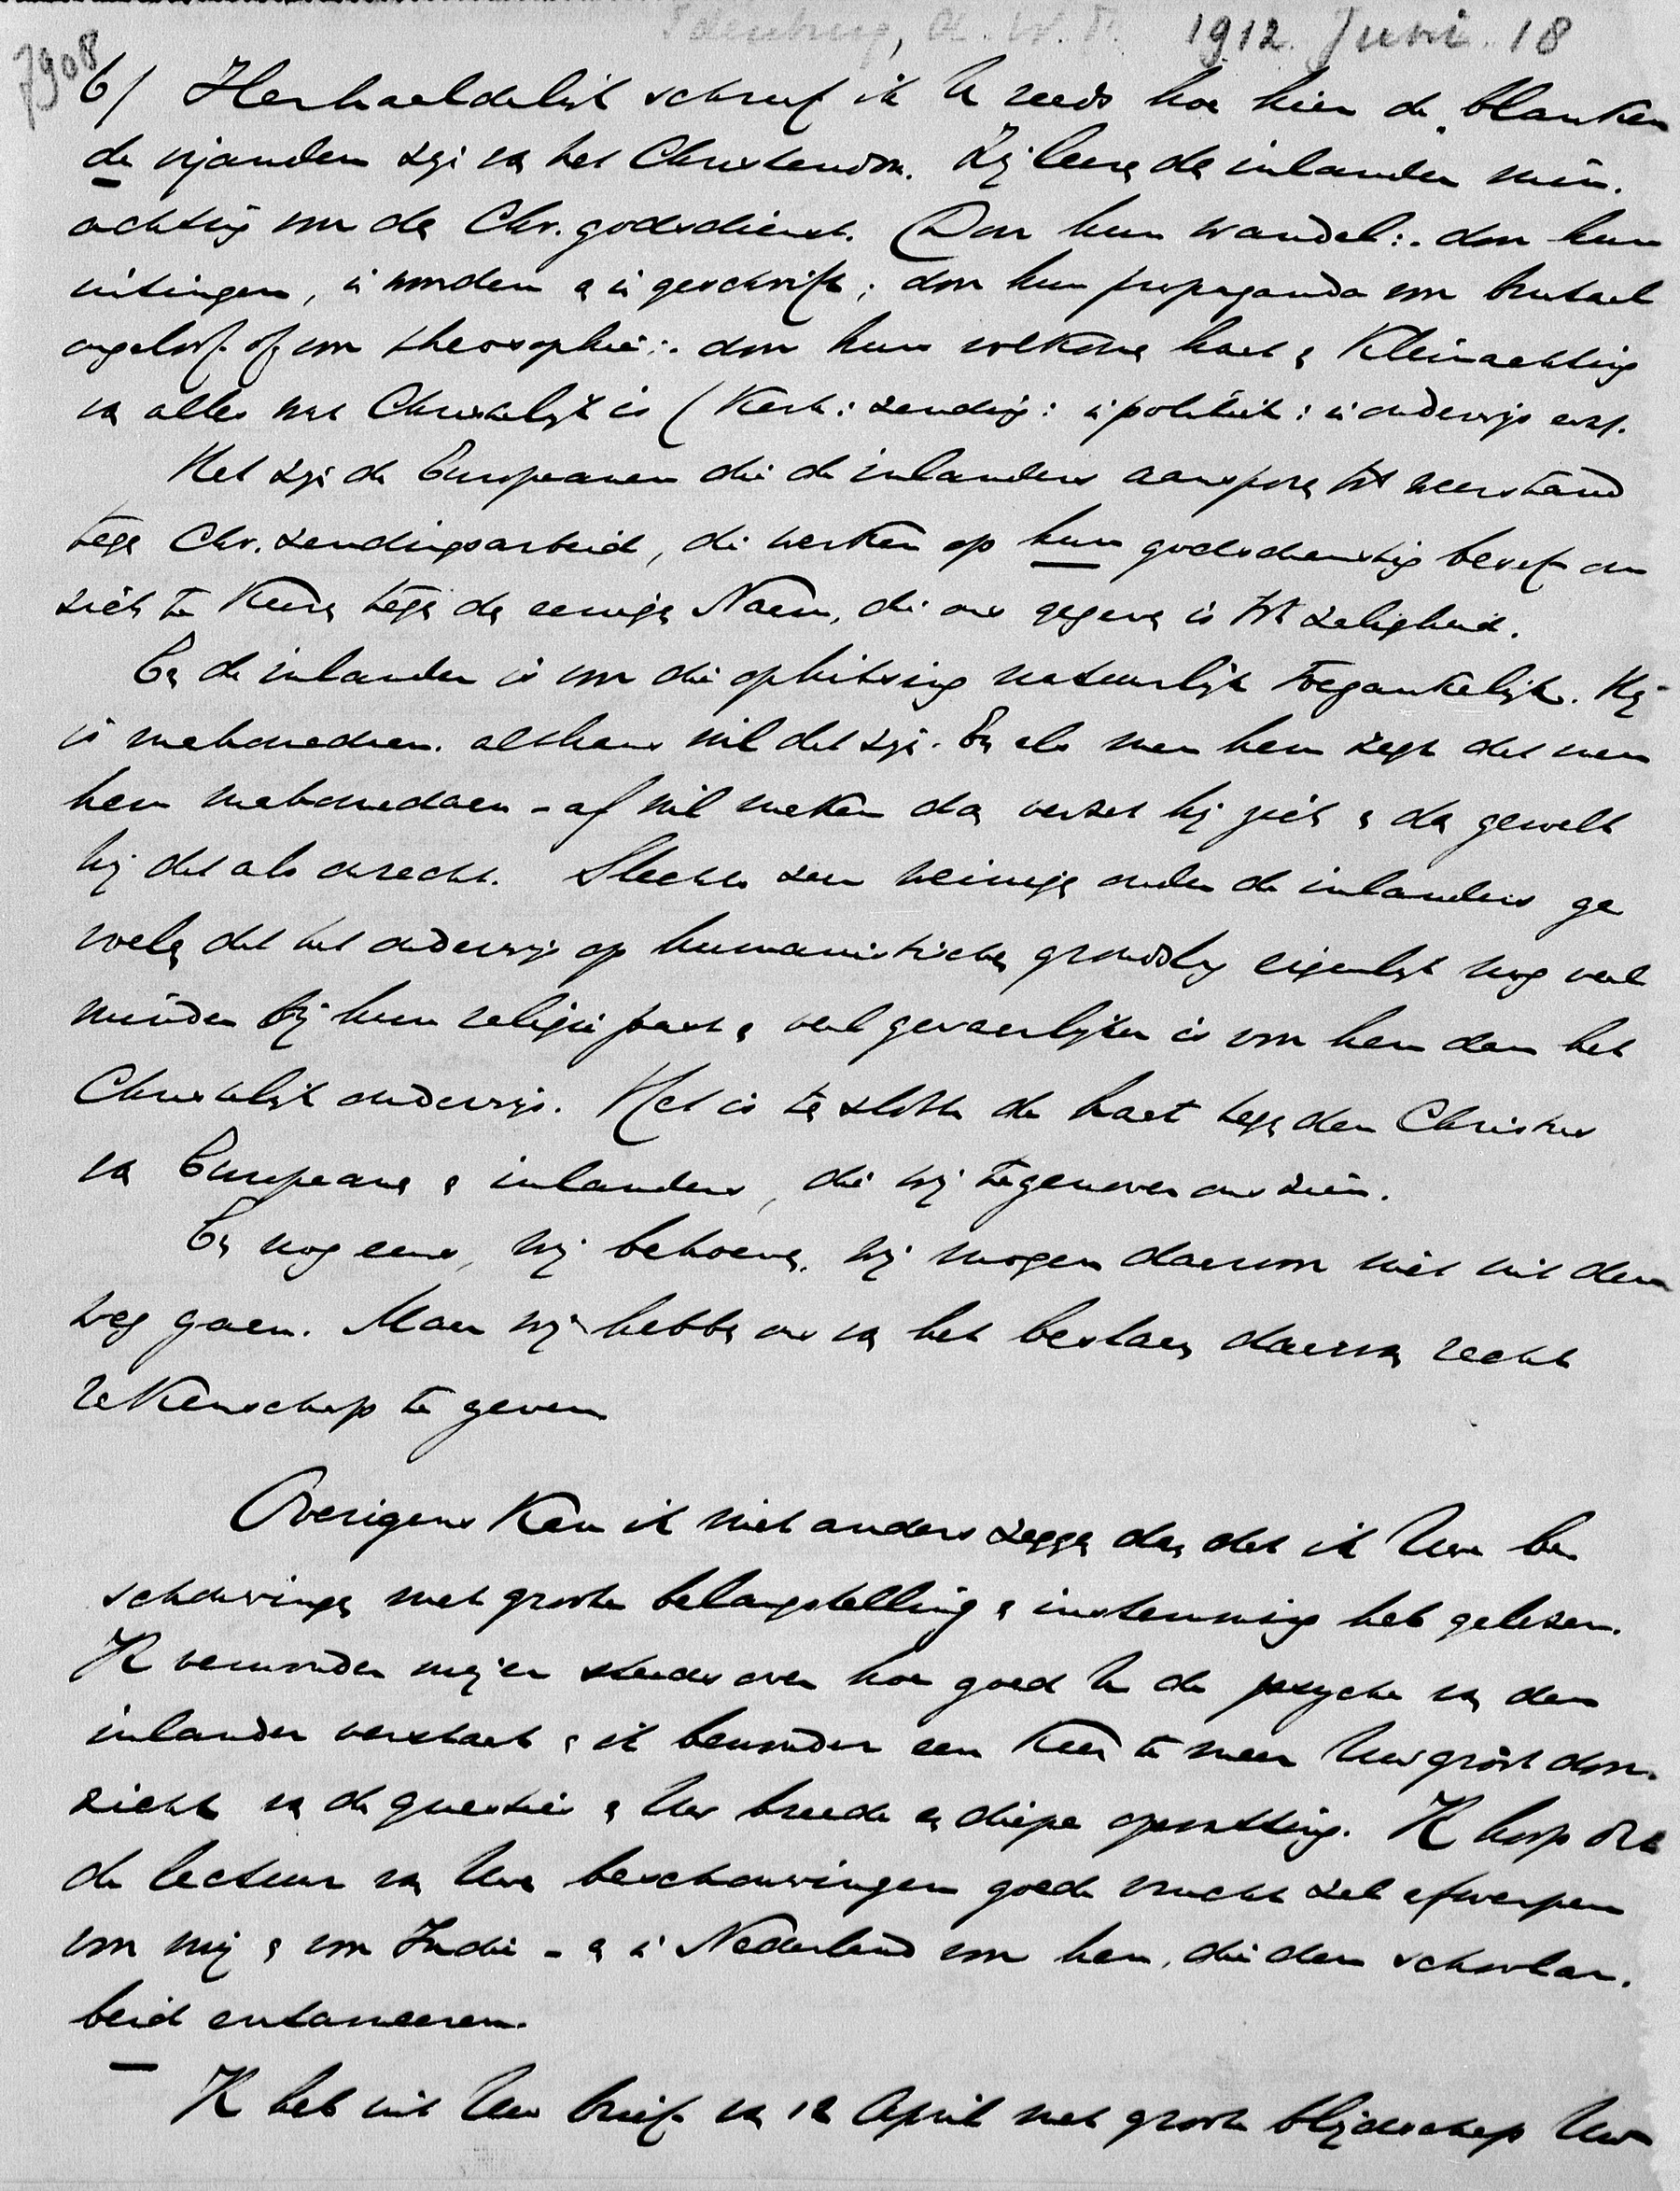 Idenburg, A. W. F. 1912 Juni 18
7908
6/ Herhaaldelijk schreef ik U reeds hoe hier de blanken
de vijanden zijn van het Christendom. Zij leeren den inlander min-
achting voor den Chr. godsdienst. Door hun wandel: door hun
uitingen, in woorden en in geschrift; door hun propaganda voor brutaal
ongeloof of voor theosophie: door hun volkomen haat en kleinachting
van alles wat Christelijk is (Kerk: zending: in politiek: in onderwijs enz.
Het zijn de Europeanen die de inlanders aansporen tot weerstand
tegen Chr. zendingsarbeid, die werken op hun godsdienstig besef om
zich te keeren tegen den eenigen Naam, die ons gegeven is tot zaligheid.
En de inlander is voor die ophitsing natuurlijk toegankelijk. Hij
is mahomedaan. althans wil dat zijn. En als men hem zegt dat men
hem mahomedaan-af wil maken dan verzet hij zich en dan gevoelt
hij dat als onrecht. Slechts zeer weinigen onder de inlanders ge
voelen dat het onderwijs op humanistischen grondslag eigenlijk nog veel
minder bij hun religie past en veel gevaarlijker is voor hen dan het
Christelijk onderwijs. Het is ten slotte de haat tegen den Christus
van Europeanen en inlanders, die wij tegenover ons zien.
En nog eens, wij behoeven, wij mogen daarvoor niet uit den
weg gaan. Maar wij hebben ons van het bestaan daarvan recht
rekenschap te geven
Overigens kan ik niet anders zeggen dan dat ik Uwe be
schouwingen met groote belangstelling en instemming heb gelezen.
Ik verwonder mij er steeds over hoe goed U de psyche van den
inlander verstaat en ik bewonder een keer te meer Uw groot door-
zicht van de quaesties en Uw breede en diepe opvatting. Ik hoop dat
de lectuur van Uwe beschouwingen goede vrucht zal afwerpen
voor mij en voor Indië - en in Nederland voor hen, die den schoolar-
beid entameeren.
Ik heb uit Uw brief van 12 April met groote blijdschap Uw